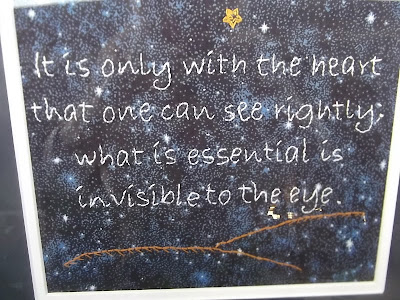 It is only with the heart
that one can see rightly;
what is essential is
invisible to the eye.